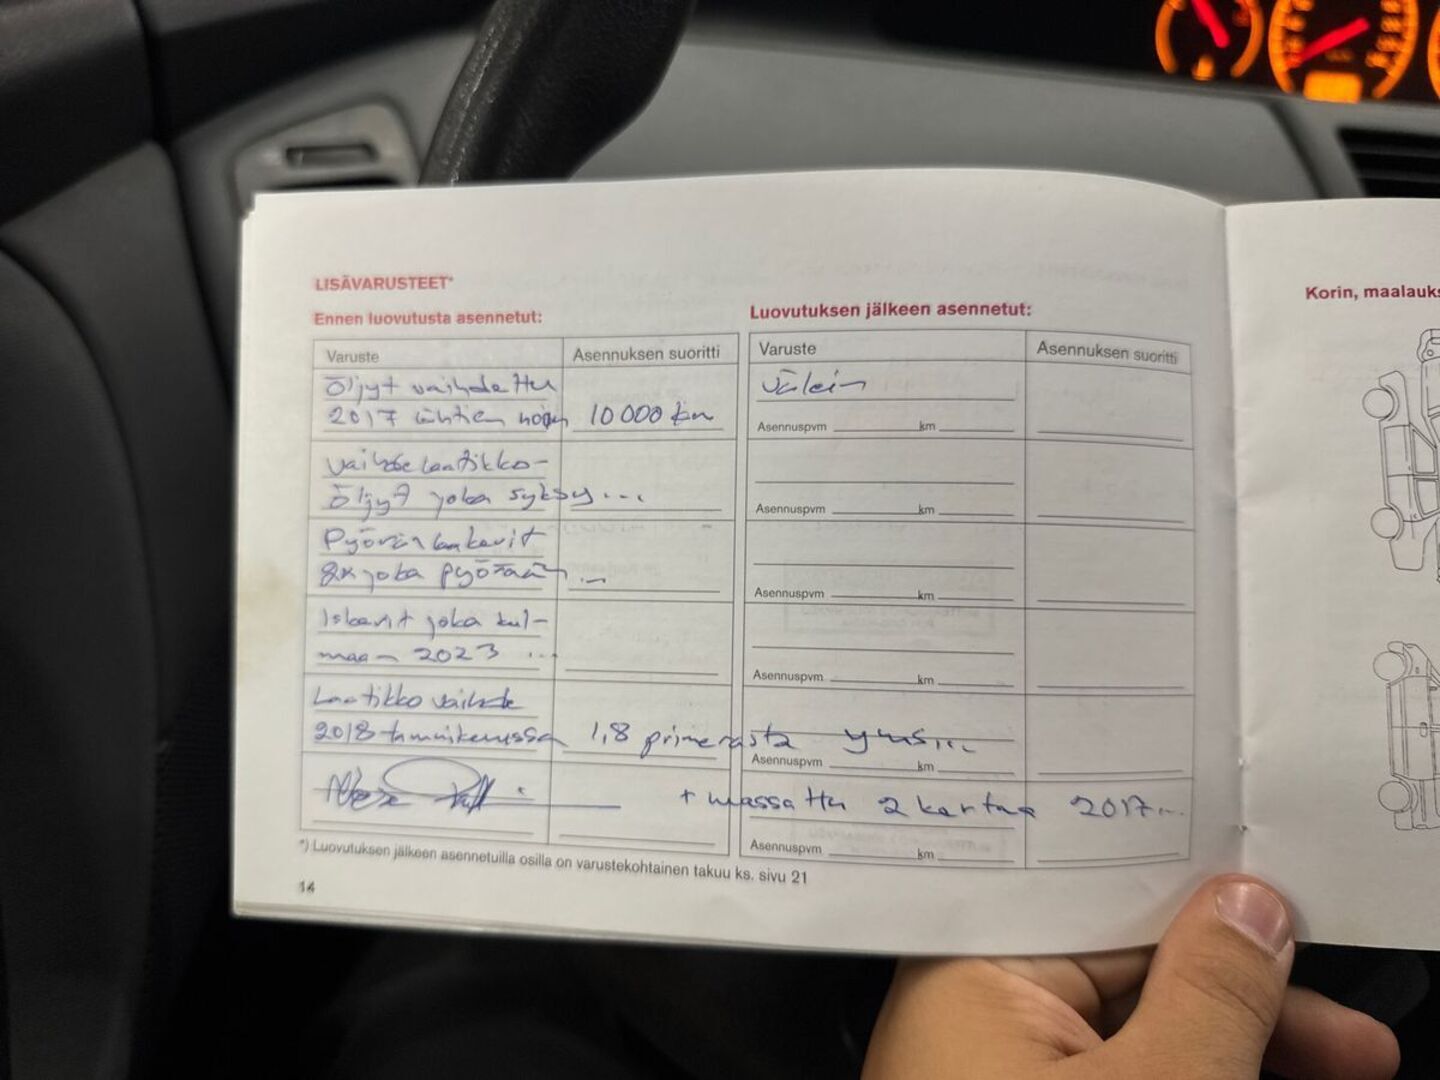 LISÄVARUSTEET*
Ennen luovutusta asennetut:
Luovutuksen jälkeen asennetut:
Korin, maalauks
Varuste
Asennuksen suoritti
Varuste
Asennuksen suoritti
Öljyt vaihdettu
2017 lähtien noin 10 000 km
välein
Asennuspvm km
Vaihdelaatikko-
öljyt joka syksy...
Asennuspvm km
Pyöränlaakerit
2x joka pyörään ...
Asennuspvm km
Iskarit joka kul-
maan 2023 ...
Asennuspvm km
Laatikko vaihde
2018 tammikuussa 1,8 primerasta yms...
Asennuspvm km
+ massattu 2 kertaa 2017...
Asennuspvm km
*) Luovutuksen jälkeen asennetuilla osilla on varustekohtainen takuu ks. sivu 21
14